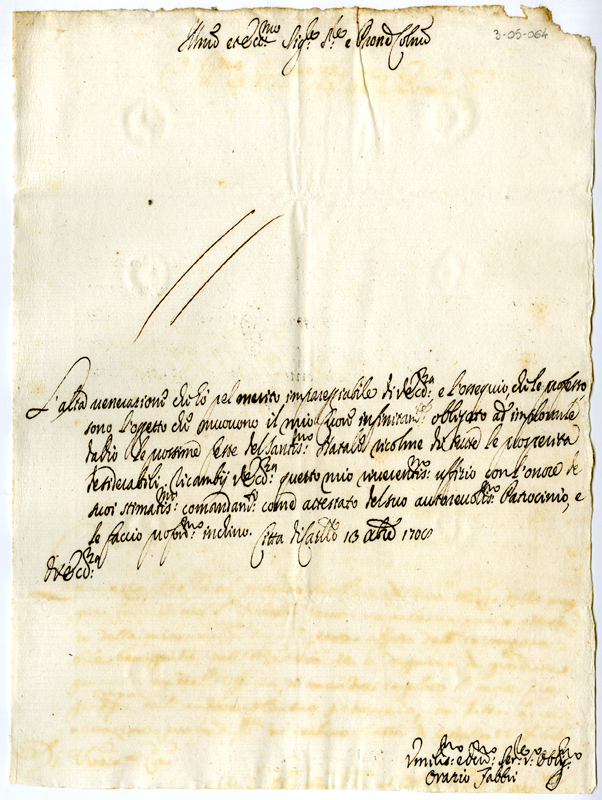 Illmo et Ecc.mo Sig.re S.re e Pron Colmo
3-05-064
L'alta venerazione che hò pel merito impareggiabile di V. Ecc.za e l'ossequio, che le professo
sono l'oggetto che muovono il mio cuore infinitam.te obligato ad implorarle
da Dio le prossime feste del Santiss.mo Natale ricolme di tutte le prosperità
desiderabili. Ricambij V. Ecc.za questo mio riverentis.mo uffizio con l'onore de
suoi stimatis.mi comandam.ti come attestato del suo autorevolis.mo Patrocinio, e
le faccio profon.mo inchino. Città di Castello 13 Xbre 1708
di V. Ecc.za
Umilis.mo e dev.mo ser.re v.ro obblig.mo
Orazio Fabbri